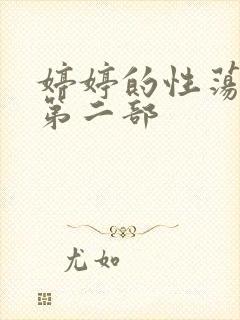 婷婷的性荡
第二部
尤如